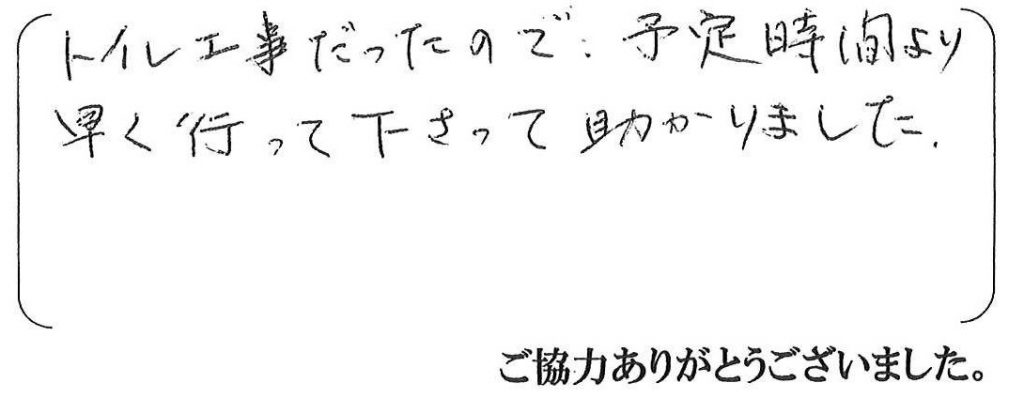 トイレ工事だったので、予定時間より
早く行って下さって助かりました。
ご協力ありがとうございました。